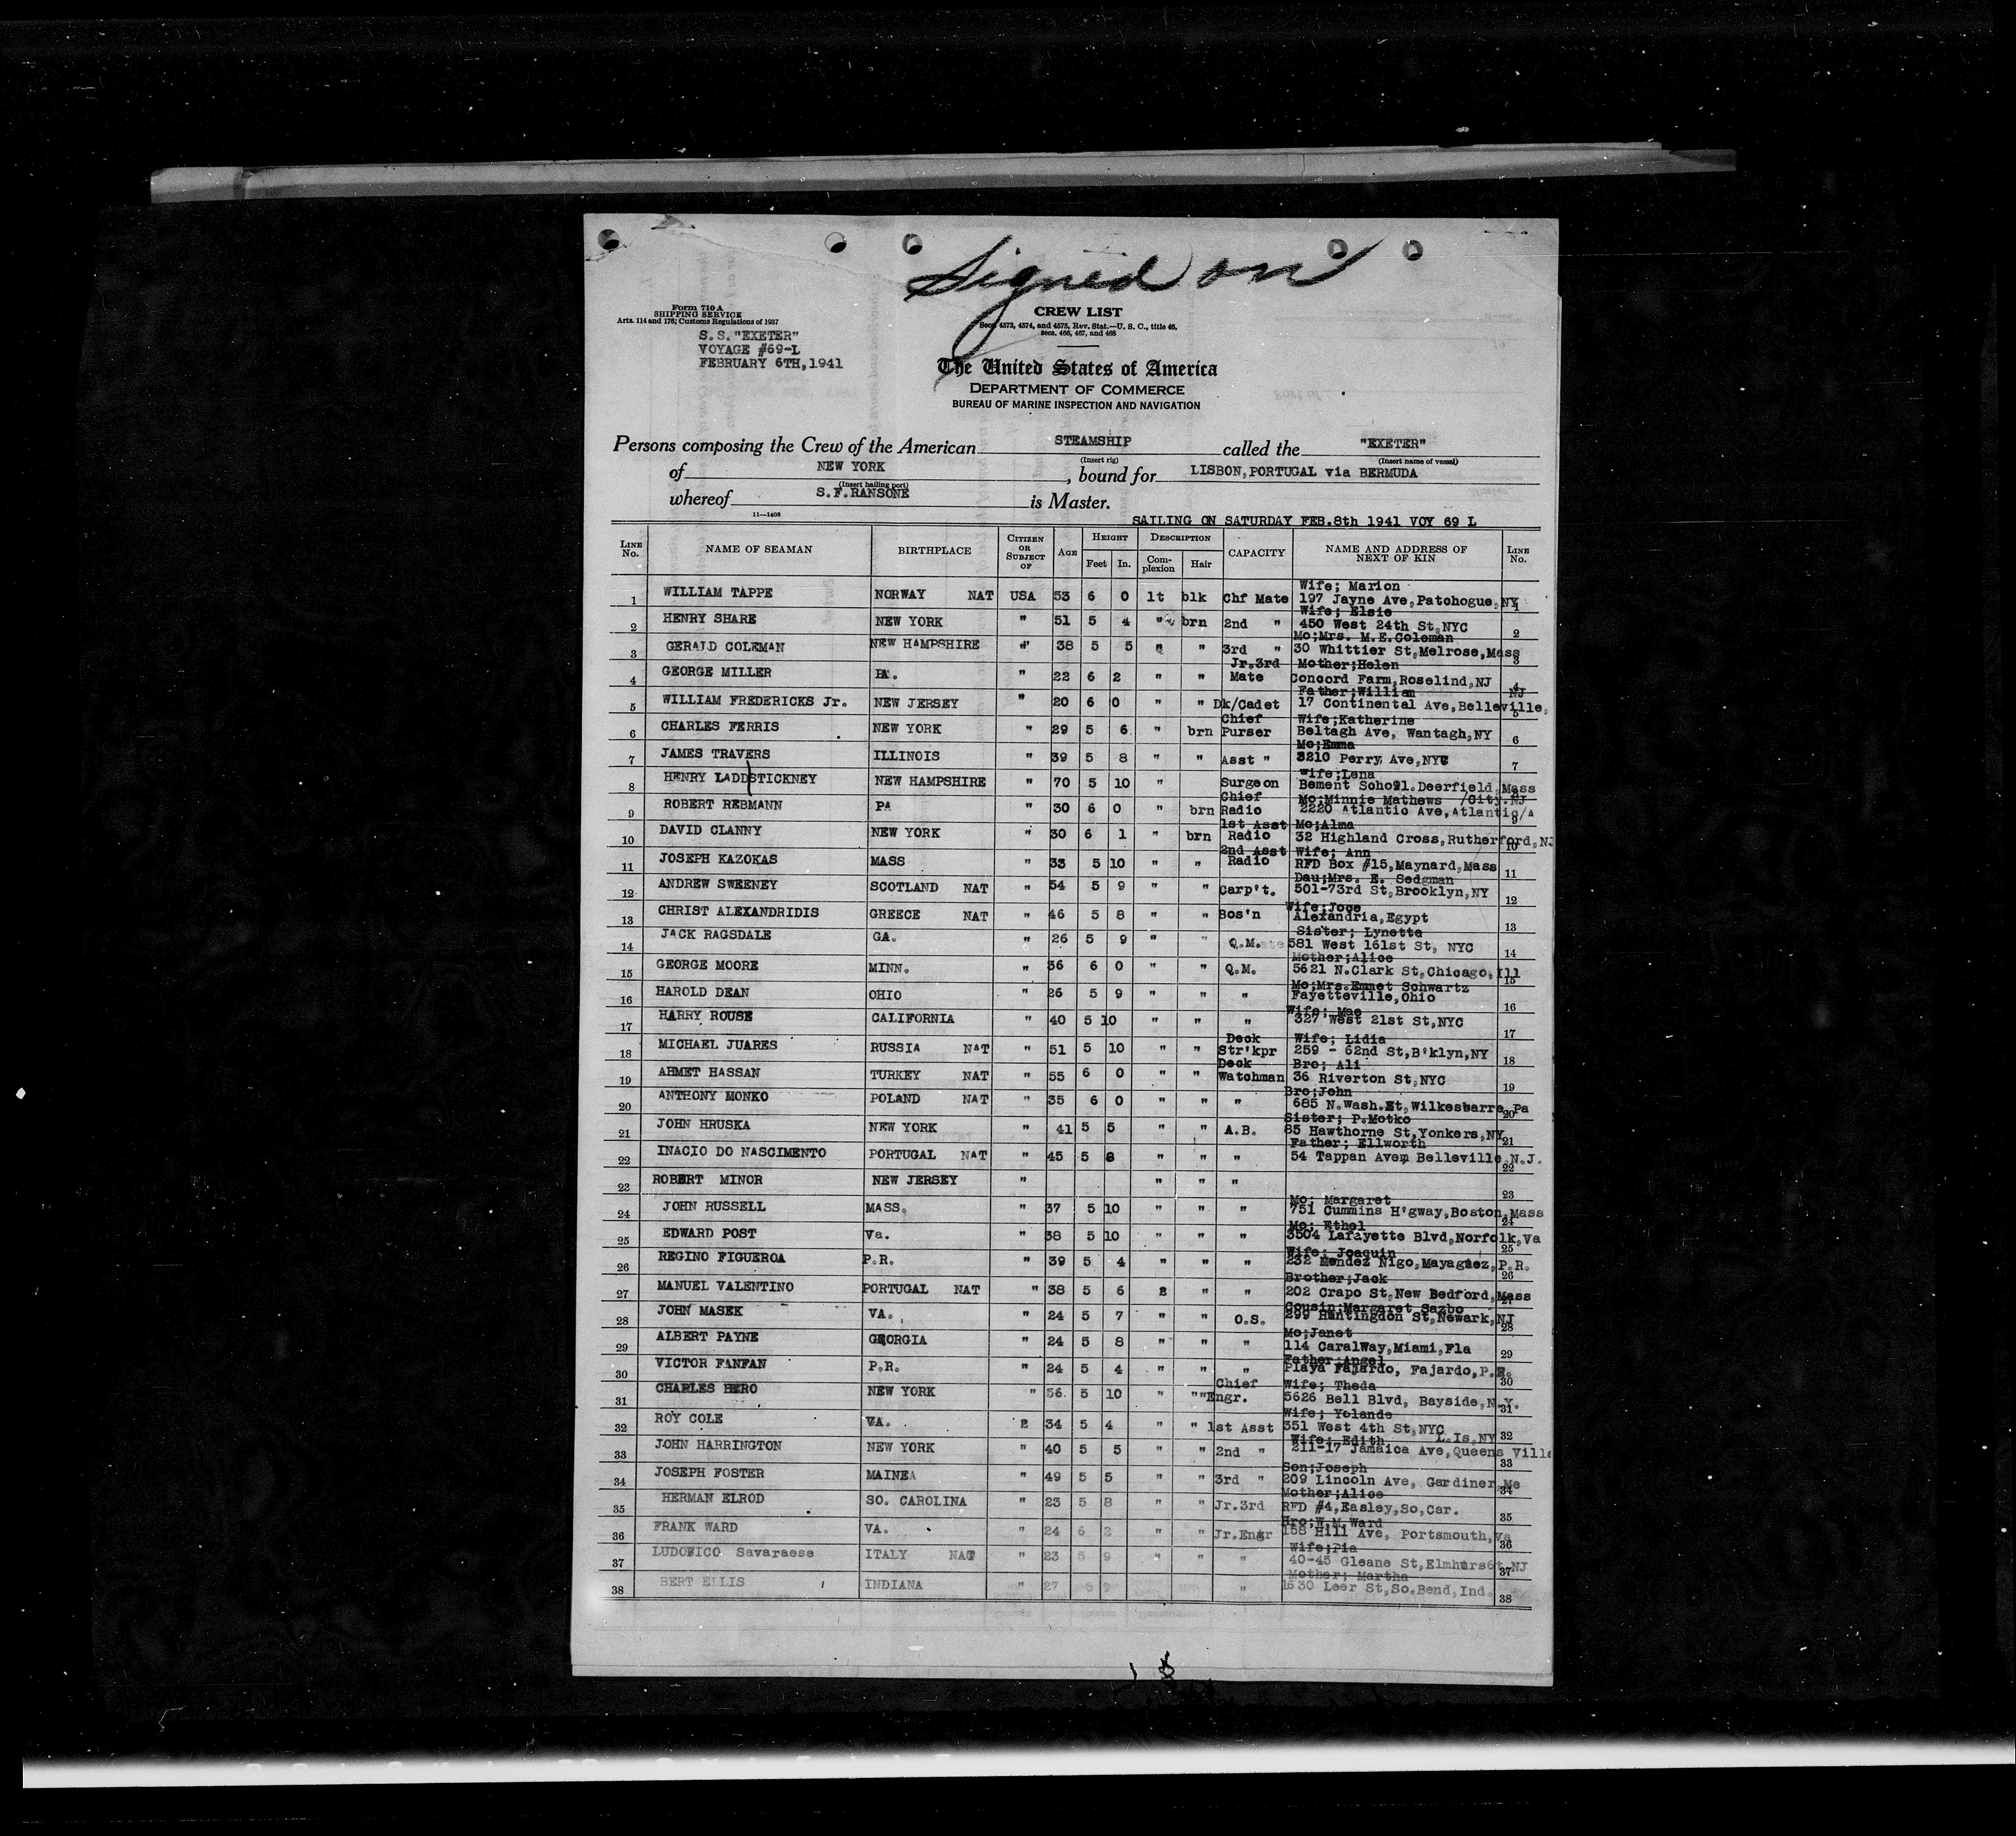 Signed on
Form 710 A
SHIPPING SERVICE
Arts. 114 and 176; Customs Regulations of 1937
S.S."EXETER"
VOYAGE #69-L
FEBRUARY 6TH,1941
CREW LIST
Secs. 4573, 4574, and 4575, Rev. Stat.—U. S. C., title 46,
secs. 466, 467, and 468
The United States of America
DEPARTMENT OF COMMERCE
BUREAU OF MARINE INSPECTION AND NAVIGATION
Persons composing the Crew of the American STEAMSHIP called the "EXETER"
(Insert rig) (Insert name of vessel)
of NEW YORK , bound for LISBON,PORTUGAL via BERMUDA
(Insert hailing port)
whereof S.F.RANSONE is Master.
11—1408
SAILING ON SATURDAY FEB.8th 1941 VOY 69 L
LINE No. NAME OF SEAMAN BIRTHPLACE CITIZEN OR SUBJECT OF AGE HEIGHT Feet In. DESCRIPTION Complexion Hair CAPACITY NAME AND ADDRESS OF NEXT OF KIN LINE No.
1 WILLIAM TAPPE NORWAY NAT USA 53 6 0 lt blk Chf Mate Wife; Marion 197 Jayne Ave,Patchogue,NY 1
2 HENRY SHARE NEW YORK " 51 5 4 " brn 2nd " Wife; Elsie 450 West 24th St,NYC 2
3 GERALD COLEMAN NEW HAMPSHIRE " 38 5 5 " " 3rd " Mo;Mrs. M.E.Coleman 30 Whittier St,Melrose,Mass 3
4 GEORGE MILLER PA. " 22 6 2 " " Jr.3rd Mate Mother;Helen Concord Farm,Roselind,NJ 4
5 WILLIAM FREDERICKS Jr. NEW JERSEY " 20 6 0 " " Dk/Cadet Father;William 17 Continental Ave,Belleville, NJ 5
6 CHARLES FERRIS NEW YORK " 29 5 6 " brn Chief Purser Wife;Katherine Beltagh Ave, Wantagh,NY 6
7 JAMES TRAVERS ILLINOIS " 39 5 8 " Asst " Mo;Emma 3210 Perry Ave,NYC 7
8 HENRY LADD STICKNEY NEW HAMPSHIRE " 70 5 10 " Surgeon Wife;Lena Bement School.Deerfield,Mass 8
9 ROBERT REBMANN PA " 30 6 0 " brn Chief Radio Mo;Minnie Mathews /City.NJ 2220 Atlantic Ave,Atlantic/ 9
10 DAVID CLANNY NEW YORK " 30 6 1 " brn 1st Asst Radio Mo;Alma 32 Highland Cross,Rutherford,NJ 10
11 JOSEPH KAZOKAS MASS " 33 5 10 " " 2nd Asst Radio Wife; Ann RFD Box #15,Maynard,Mass 11
12 ANDREW SWEENEY SCOTLAND NAT " 54 5 9 " " Carp't. Dau;Mrs. E. Sedgman 501-73rd St,Brooklyn,NY 12
13 CHRIST ALEXANDRIDIS GREECE NAT " 46 5 8 " " Bos'n Wife;Joce Alexandria,Egypt 13
14 JACK RAGSDALE GA. " 26 5 9 " " Q.M. Sister; Lynette 581 West 161st St, NYC 14
15 GEORGE MOORE MINN. " 36 6 0 " " Q.M. Mother;Alice 5621 N.Clark St,Chicago,Ill 15
16 HAROLD DEAN OHIO " 26 5 9 " " " Mo;Mrs.Emmet Schwartz Fayetteville,Ohio 16
17 HARRY ROUSE CALIFORNIA " 40 5 10 " " " Wife; Mae 327 West 21st St,NYC 17
18 MICHAEL JUARES RUSSIA NAT " 51 5 10 " " Deck Str'kpr Wife; Lidia 259 - 62nd St,B'klyn,NY 18
19 AHMET HASSAN TURKEY NAT " 55 6 0 " " Deck Watchman Bro; Ali 36 Riverton St,NYC 19
20 ANTHONY MONKO POLAND NAT " 35 6 0 " " " Bro;John 685 N.Wash.St,Wilkesbarre,Pa 20
21 JOHN HRUSKA NEW YORK " 41 5 5 " " A.B. Sister; P.Motko 85 Hawthorne St,Yonkers,NY 21
22 INACIO DO NASCIMENTO PORTUGAL NAT " 45 5 8 " " " Father; Ellworth 54 Tappan Avem Belleville,N.J. 22
23 ROBERT MINOR NEW JERSEY " " " " 23
24 JOHN RUSSELL MASS. " 37 5 10 " " " Mo; Margaret 751 Cummins H'gway,Boston,Mass 24
25 EDWARD POST Va. " 38 5 10 " " " Mo; Ethel 3504 Lafayette Blvd,Norfolk,Va 25
26 REGINO FIGUEROA P.R. " 39 5 4 " " " Wife; Joaquin 232 Mendez Nigo,Mayaguez,P.R. 26
27 MANUEL VALENTINO PORTUGAL NAT " 38 5 6 2 " " Brother;Jack 202 Crapo St,New Bedford,Mass 27
28 JOHN MASEK VA. " 24 5 7 " " O.S. Cousin;Margaret Sazbo 299 Huntingdon St,Newark,NJ 28
29 ALBERT PAYNE GEORGIA " 24 5 8 " " " Mo;Janet 114 CaralWay,Miami,Fla 29
30 VICTOR FANFAN P.R. " 24 5 4 " " " Father;Angel Playa Fajardo, Fajardo,P.R. 30
31 CHARLES HERO NEW YORK " 56 5 10 " " Chief "Engr. Wife; Theda 5626 Bell Blvd, Bayside,N.Y. 31
32 ROY COLE VA. 2 34 5 4 " " 1st Asst Wife; Yolande 351 West 4th St,NYC 32
33 JOHN HARRINGTON NEW YORK " 40 5 5 " " 2nd " Wife; Edith L.Is,NY 211-17 Jamaica Ave,Queens Villa 33
34 JOSEPH FOSTER MAINE " 49 5 5 " " 3rd " Son;Joseph 209 Lincoln Ave, Gardiner,Me 34
35 HERMAN ELROD SO. CAROLINA " 23 5 8 " " Jr.3rd Mother;Alice RFD #4,Easley,So,Car. 35
36 FRANK WARD VA. " 24 6 2 " " Jr.Engr Bro;W.M.Ward 158 Hill Ave, Portsmouth,Va 36
37 LUDOVICO Savaraese ITALY NAT " 23 5 9 " " " Wife;Pia 40-45 Gleane St,Elmhurst,NJ 37
38 BERT ELLIS INDIANA " 27 5 9 " Mother; Martha 1630 Leer St,So.Bend,Ind. 38